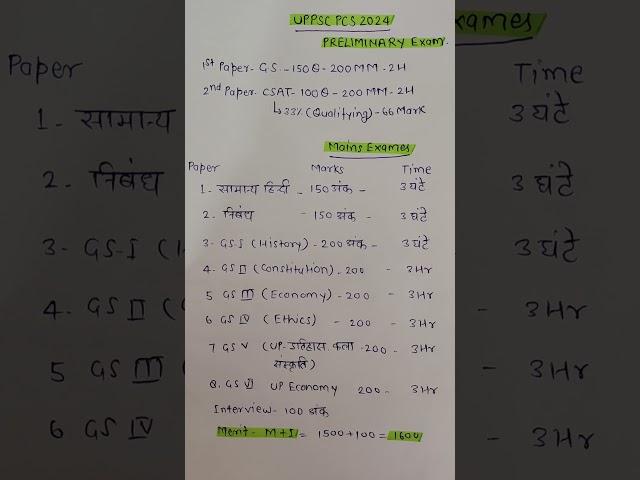 UPPSC PCS 2024
PRELIMINARY Exam.
1st Paper- GS - 150Q - 200MM - 2H
2nd Paper- CSAT- 100Q - 200 MM- 2H
↳ 33% (Qualifying) - 66 Mark
Mains Exames
Paper Marks Time
1. सामान्य हिन्दी - 150 अंक - 3 घंटे
2. निबंध - 150 अंक - 3 घंटे
3. GS-I (History) - 200 अंक - 3 घंटे
4. GS II (Constitution) - 200 - 3Hr
5 GS III (Economy) - 200 - 3Hr
6 GS IV (Ethics) - 200 - 3Hr
7 GS V (UP- इतिहास. कला - 200 - 3Hr
संस्कृति)
8. GS VI UP Economy 200 - 3Hr
Interview- 100 अंक
Merit - M+I = 1500+100 = 1600
Paper
1 - सामान्य
2. निबंध
3- GS-I (
4. GS II (
5 GS III (
6 GS IV
xames
Time
3 घंटे
3 घंटे
3 घंटे
- 3Hr
- 3Hr
- 3Hr